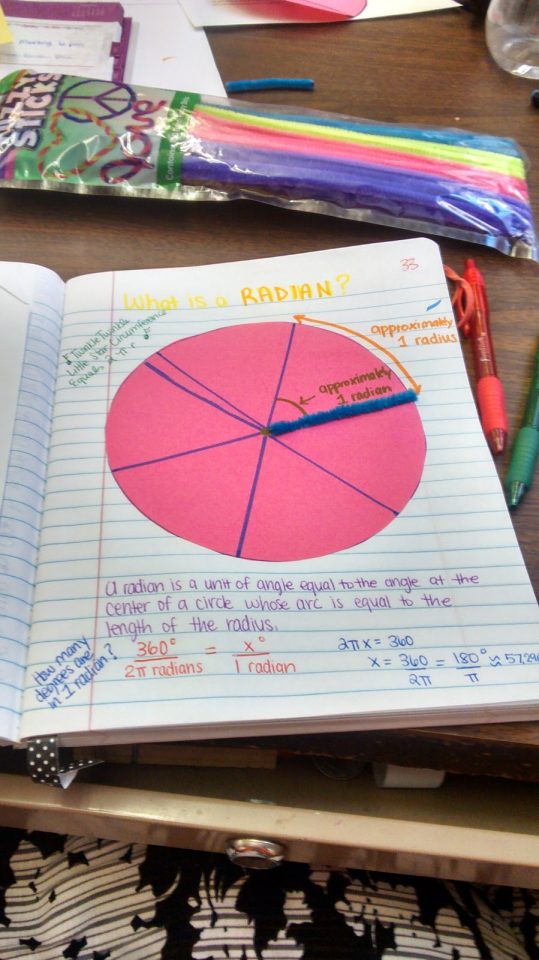 FUZZY
STICKS
Love
33
What is a RADIAN?
Twinkle Twinkle
Little Star Circumference
Equals 2 π r
approximately
1 radius
approximately
1 radian
A radian is a unit of angle equal to the angle at the
center of a circle whose arc is equal to the
length of the radius.
How many
degrees are
in 1 radian?
360° = x°
2π radians 1 radian
2πx = 360
x = 360 = 180° ≈ 57.296
2π π